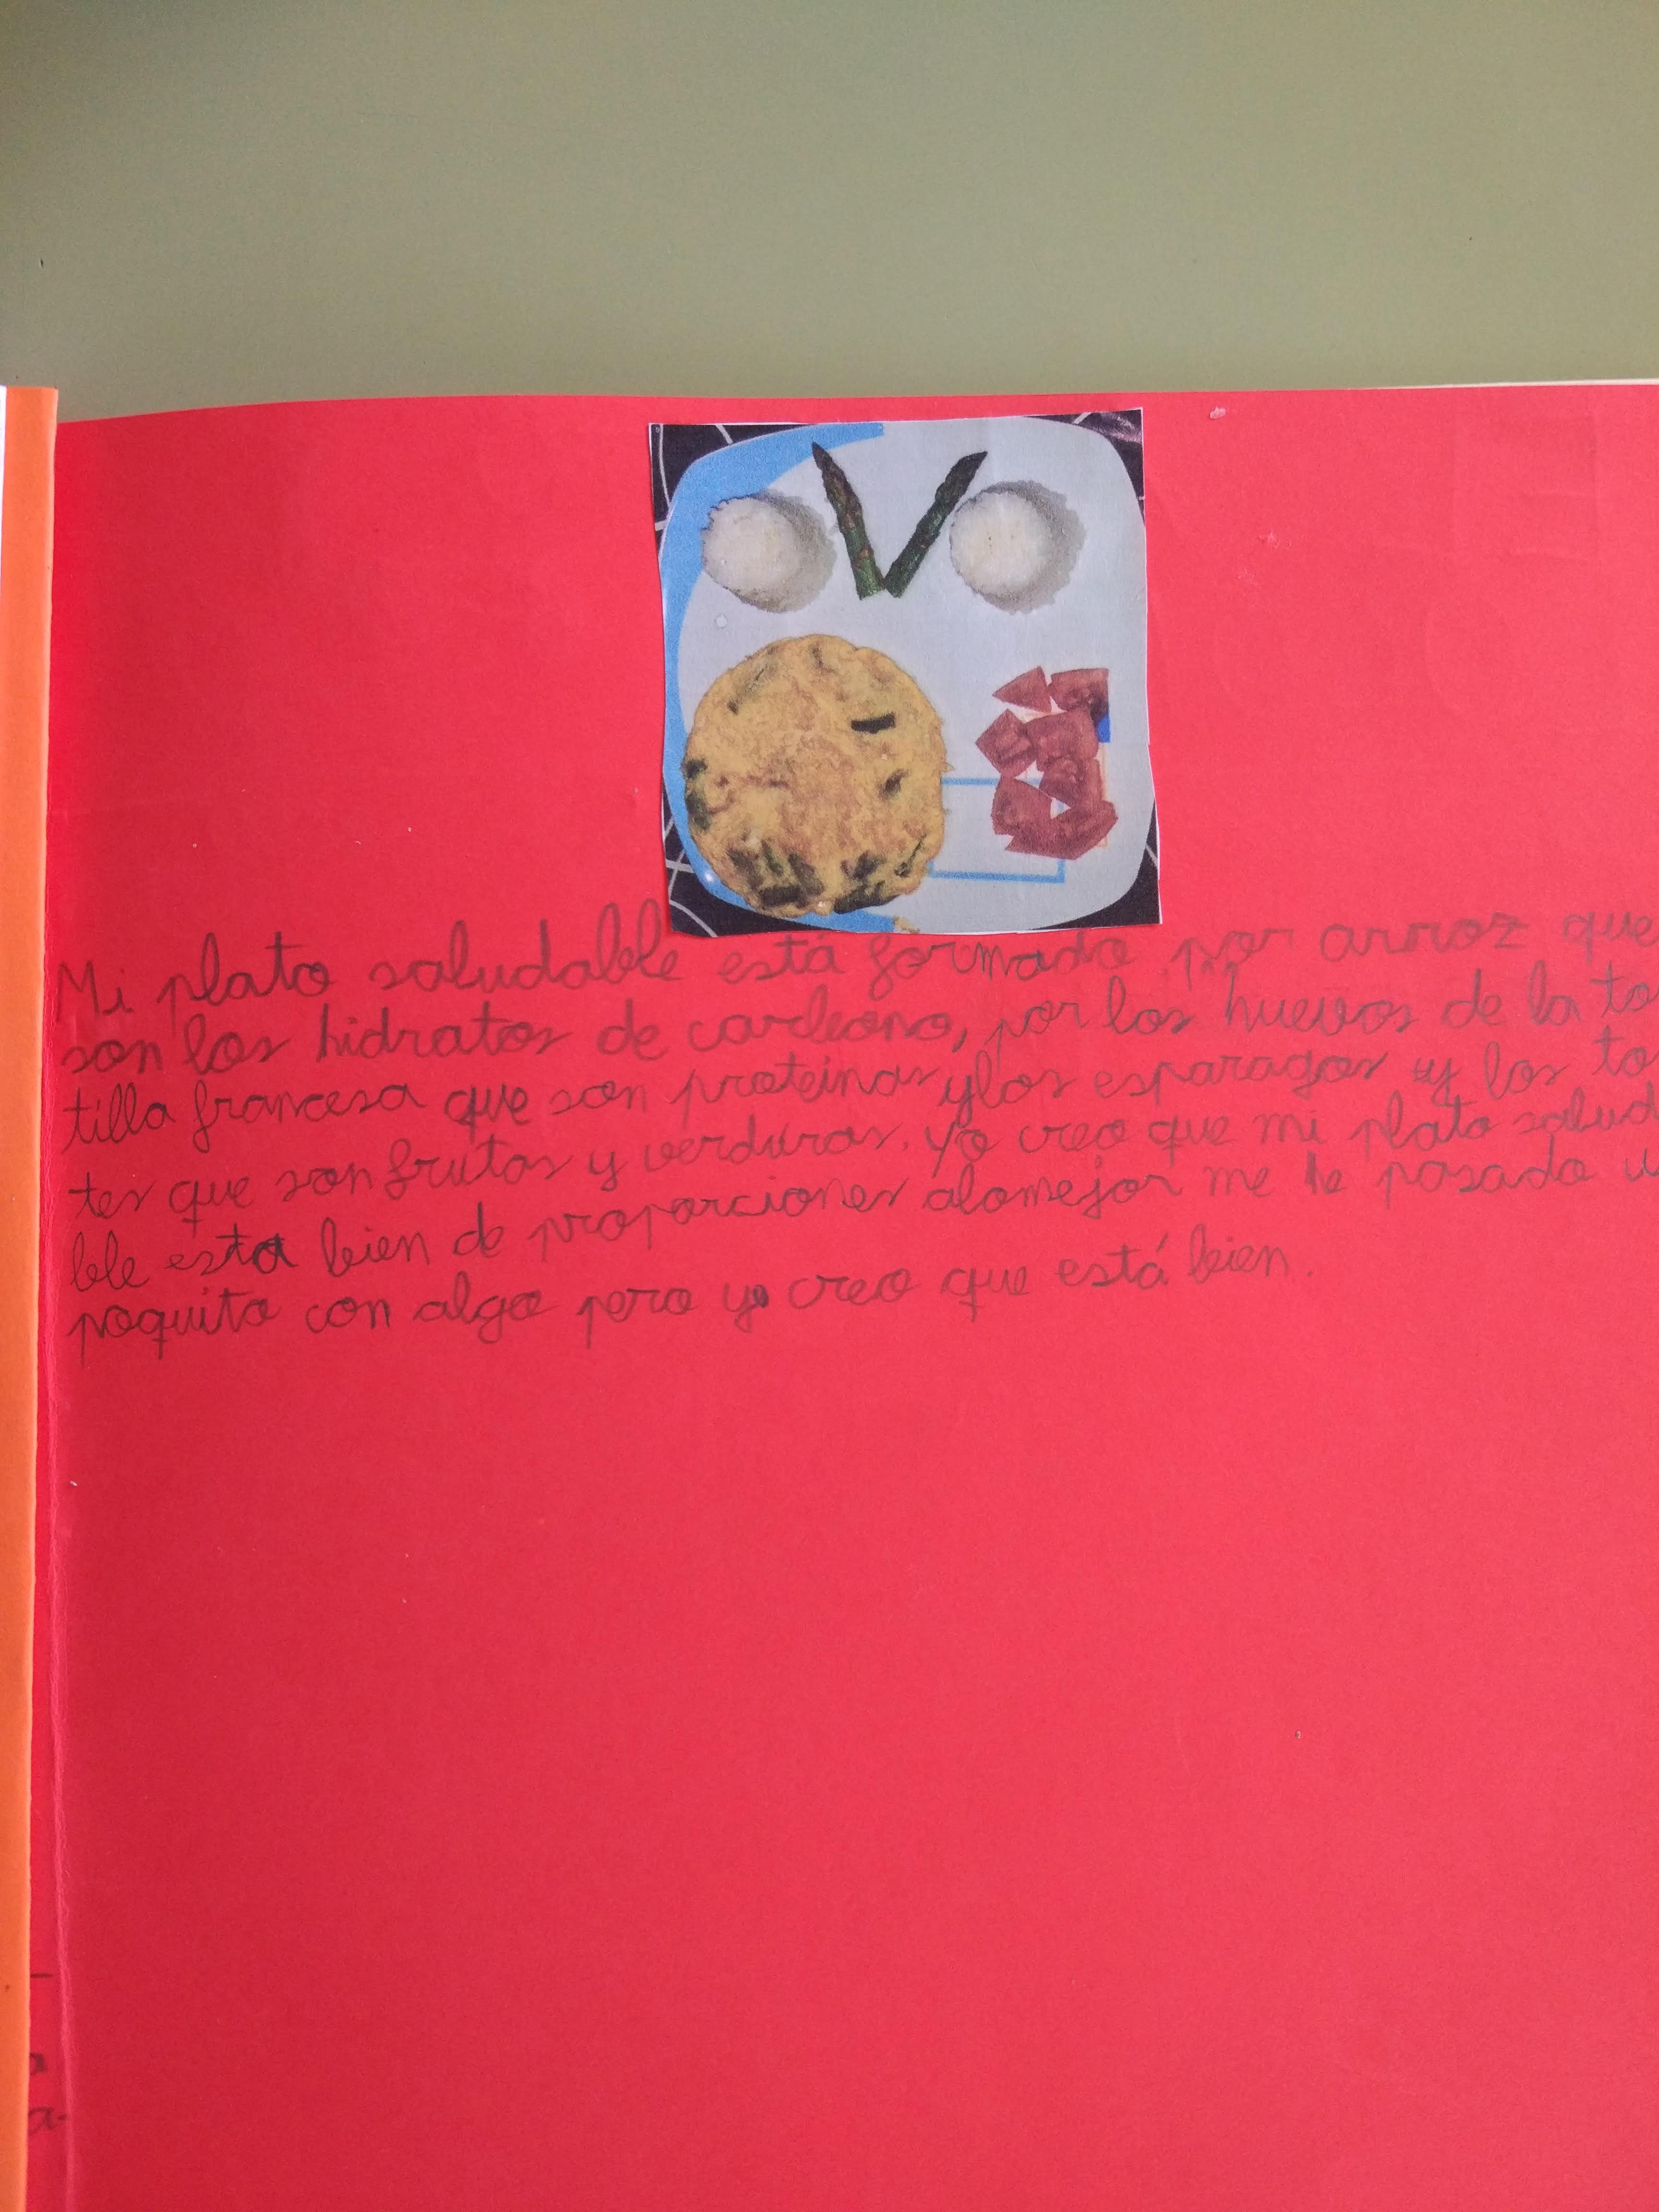 Mi plato saludable está formado por arroz que
son los hidratos de carbono, por los huevos de la to
tilla francesa que son proteínas y los esparagos y los to
tes que son frutas y verduras. Yo creo que mi plato salud
ble esta bien de proporciones alomejor me he pasado u
poquito con algo pero yo creo que está bien.
a
a-